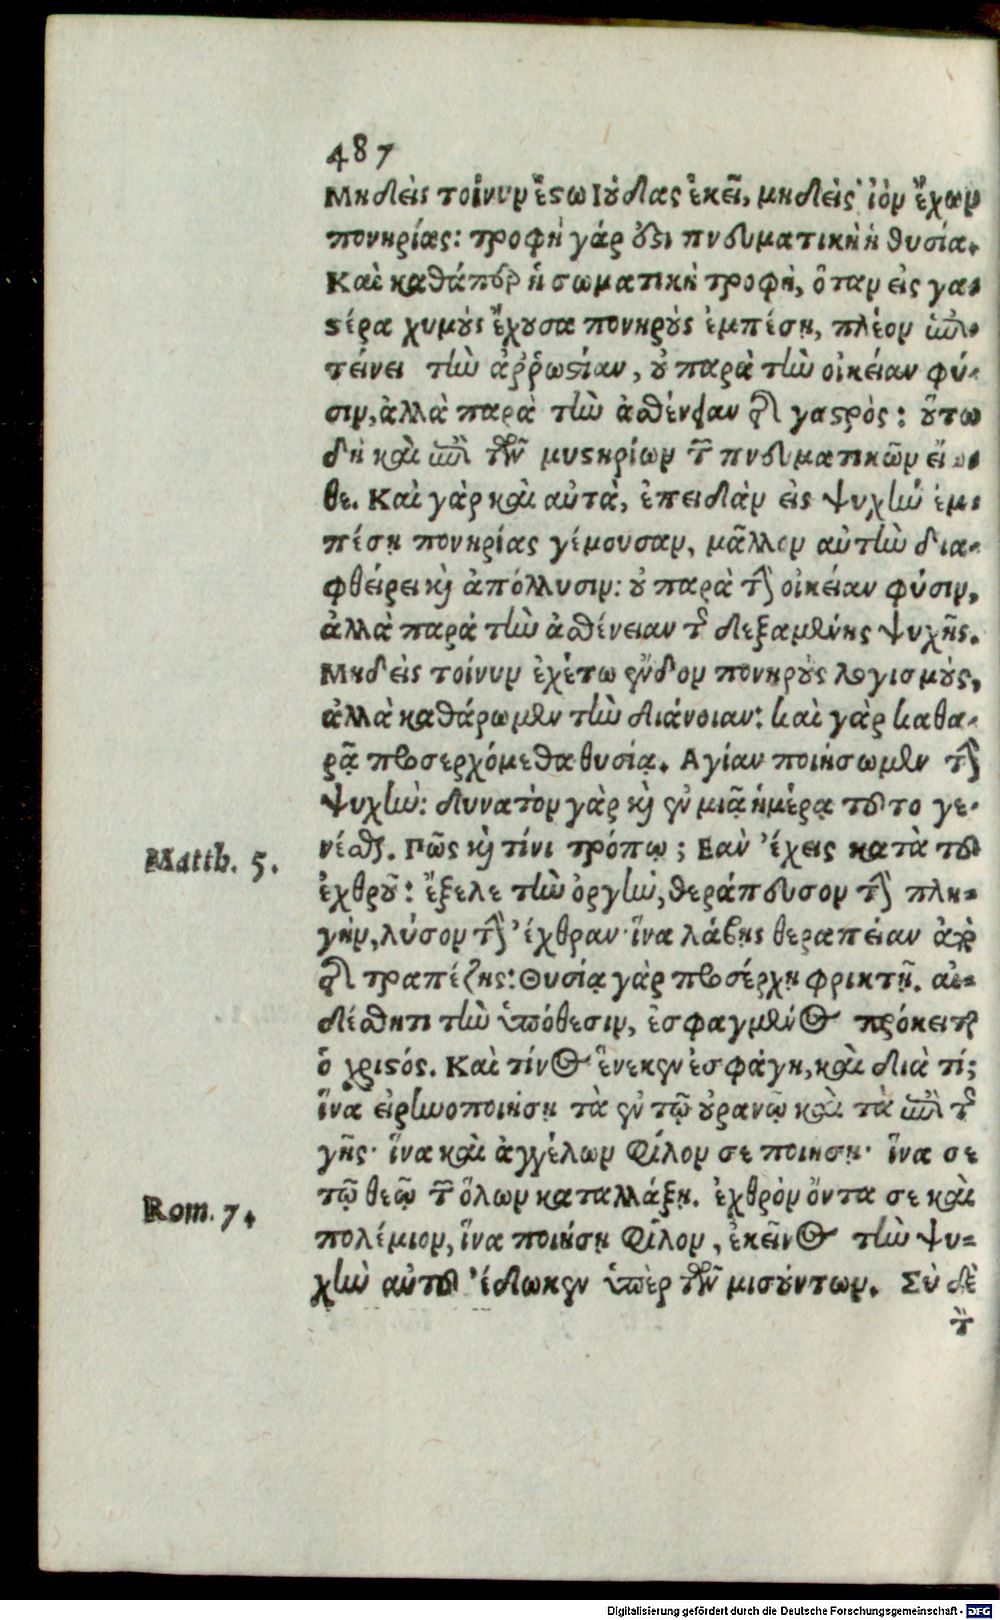 487
Μηδεὶς τοίνυν ἔστω Ιούδας ἐκεῖ, μηδεὶς ἰὸν ἔχων
πονηρίας: τροφὴ γάρ ὅτι πνευματικὴ ἡ θυσία.
Καὶ καθάπερ ἡ σωματικὴ τροφὴ, ὅταν εἰς γα-
στέρα χυμοὺς ἔχουσα πονηροὺς ἐμπέσῃ, πλέον ἐπι-
τείνει τὴν ἀῤῥωστίαν, οὐ παρὰ τὴν οἰκείαν φύ-
σιν, ἀλλὰ παρὰ τὴν ἀσθένειαν τῆς γαστρὸς: οὕτω
δὴ καὶ ἐπὶ τῶν μυστηρίων τῶν πνευματικῶν εἴω-
θε. Καὶ γὰρ καὶ αὐτὰ, ἐπειδὰν εἰς ψυχὴν ἐμ-
πέσῃ πονηρίας γέμουσαν, μᾶλλον αὐτὴν δια-
φθείρει καὶ ἀπόλλυσιν: οὐ παρὰ τὴν οἰκείαν φύσιν,
ἀλλὰ παρὰ τὴν ἀσθένειαν τῆς δεξαμένης ψυχῆς.
Μηδεὶς τοίνυν ἐχέτω ἔνδον πονηροὺς λογισμούς,
ἀλλὰ καθάρωμεν τὴν διάνοιαν: καὶ γὰρ καθα-
ρᾷ προσερχόμεθα θυσίᾳ. Αγίαν ποιήσωμεν τὴν
ψυχήν: δυνατὸν γὰρ καὶ ἐν μιᾷ ἡμέρᾳ τοῦτο γε-
Matth. 5. νέσθαι. Πῶς καὶ τίνι τρόπῳ; Εαν ἔχεις κατὰ τοῦ
ἐχθροῦ: ἔξελε τὴν ὀργὴν, θεράπευσον τὴν πλη-
γὴν, λύσον τὴν ἔχθραν· ἵνα λάβῃς θεραπείαν ἀπὸ
τῆς τραπέζης: Θυσίᾳ γὰρ προσέρχῃ φρικτῇ. αἰ-
δέσθητι τὴν ὑπόθεσιν, ἐσφαγμένος πρόκειται
ὁ χριστός. Καὶ τίνος ἕνεκεν ἐσφάγη, καὶ διὰ τί;
ἵνα εἰρηνοποιήσῃ τὰ ἐν τῷ οὐρανῷ καὶ τὰ ἐπὶ τῆς
γῆς· ἵνα καὶ ἀγγέλων φίλον σε ποιησῃ· ἵνα σε
Rom. 7. τῷ θεῷ τῶν ὅλων καταλλάξῃ. ἐχθρὸν ὄντα σε καὶ
πολέμιον, ἵνα ποιήσῃ φίλον, ἐκεῖνος τὴν ψυ-
χὴν αὐτοῦ ἔδωκεν ὑπὲρ τῶν μισούντων. Σὺ δὲ
Digitalisierung gefördert durch die Deutsche Forschungsgemeinschaft - DFG